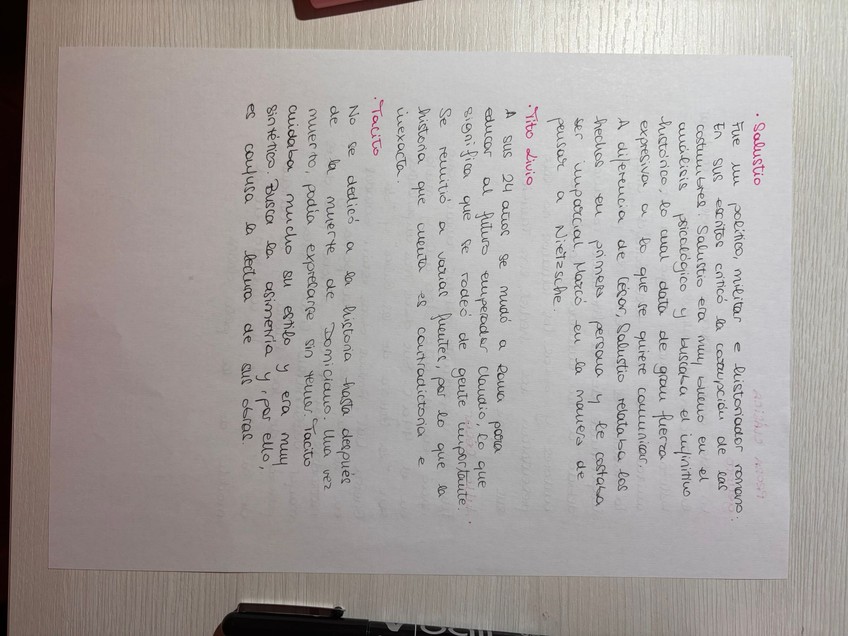 · Salustio
Fue un político, militar e historiador romano.
En sus escritos criticó la corrupción de las
costumbres. Salustio era muy bueno en el
análisis psicológico y buscaba el infinitivo
histórico, lo cual data de gran fuerza
expresiva a lo que se quiere comunicar.
A diferencia de César, Salustio relataba los
hechos en primera persona y le costaba
ser imparcial. Marcó en la manera de
pensar a Nietzsche.
· Tito Livio
A sus 24 años se mudó a Roma para
educar al futuro emperador Claudio, lo que
significa que se rodeó de gente importante.
Se remitió a varias fuentes, por lo que la
historia que cuenta es contradictoria e
inexacta.
· Tacito
No se dedicó a la historia hasta después
de la muerte de Domiciano. Una vez
muerto, podía expresarse sin temer. Tacito
cuidaba mucho su estilo y era muy
sintético. Busca la asimetría y, por ello,
es confusa la lectura de sus obras.